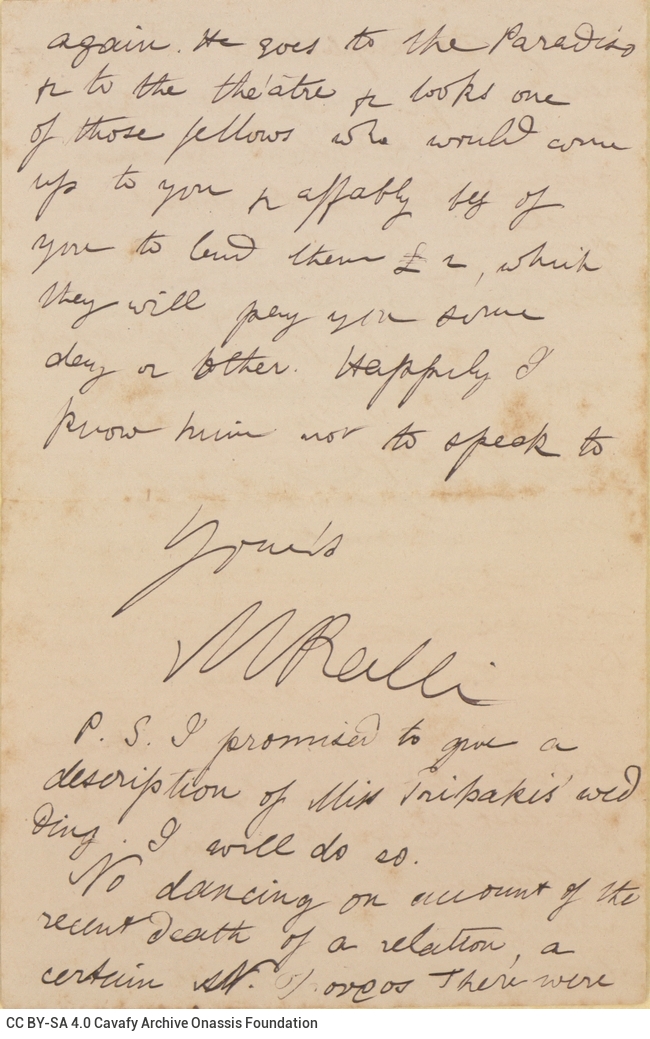 again. He goes to the Paradiso
& to the théatre & looks one
of those fellows who would come
up to you & affably beg of
you to lend them £ 2, which
they will pay you some
day or other. Happily I
know him not to speak to
Your's
MRalli
P. S. I promised to give a
description of Miss wed
ding. I will do so.
No dancing on account of the
recent death of a relation, a
certain There were
CC BY-SA 4.0 Cavafy Archive Onassis Foundation